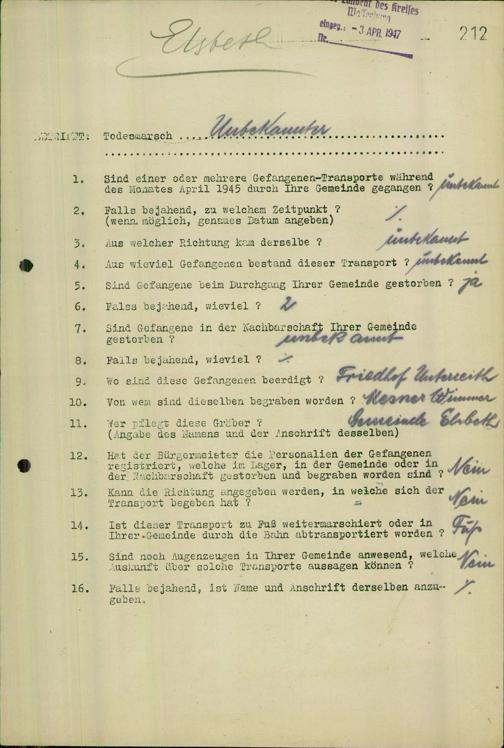 Landrat des Kreises
eingeg.: - 3 APR. 1947
Nr.
212
Elsbeth
BETRIFFT: Todesmarsch .... Unbekannter
1. Sind einer oder mehrere Gefangenen-Transporte während
des Monates April 1945 durch Ihre Gemeinde gegangen ? unbekannt
2. Falls bejahend, zu welchem Zeitpunkt ?
(wenn möglich, genaues Datum angeben) %
3. Aus welcher Richtung kam derselbe ? unbekannt
4. Aus wieviel Gefangenen bestand dieser Transport ? unbekannt
5. Sind Gefangene beim Durchgang Ihrer Gemeinde gestorben ? ja
6. Falss bejahend, wieviel ? 2
7. Sind Gefangene in der Nachbarschaft Ihrer Gemeinde
gestorben ? unbekannt
8. Falls bejahend, wieviel ? %
9. Wo sind diese Gefangenen beerdigt ? Friedhof Unterreith
10. Von wem sind dieselben begraben worden ? Mesner Wimmer
11. Wer pflegt diese Gräber ? Gemeinde Elsbeth
(Angabe des Namens und der Anschrift desselben)
12. Hat der Bürgermeister die Personalien der Gefangenen
registriert, welche im Lager, in der Gemeinde oder in
der Nachbarschaft gestorben und begraben worden sind ? Nein
13. Kann die Richtung angegeben werden, in welche sich der
Transport begeben hat ? Nein
14. Ist dieser Transport zu Fuß weitermarschiert oder in
Ihrer Gemeinde durch die Bahn abtransportiert worden ? Fuß
15. Sind noch Augenzeugen in Ihrer Gemeinde anwesend, welche
Auskunft über solche Transporte aussagen können ? Nein
16. Falls bejahend, ist Name und Anschrift derselben anzu-
geben. %